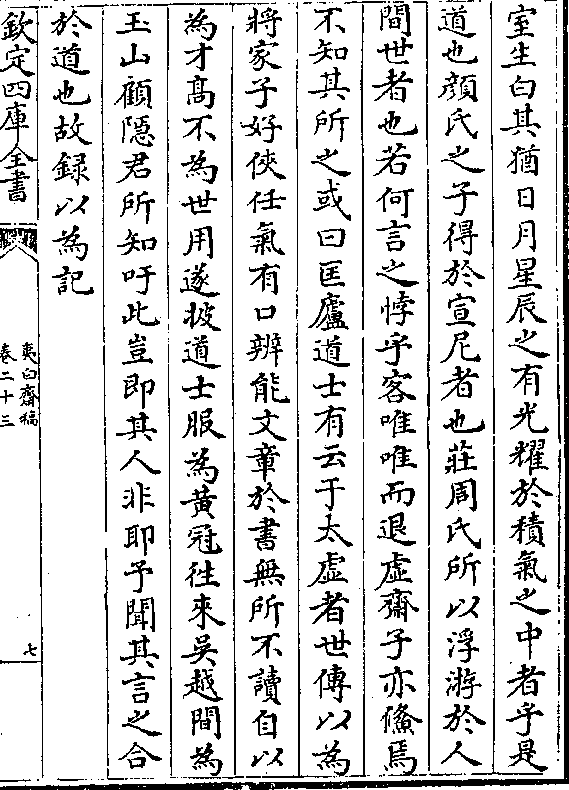 室生白其猶日月星辰之有光耀於積氣之中者乎是
道也顔氏之子得於宣尼者也莊周氏所以浮游於人
間世者也若何言之悖乎客唯唯而退虚齋子亦儵焉
不知其所之或曰匡廬道士有云于太虚者世傳以為
將家子好俠任氣有口辨能文章於書無所不讀自以
為才髙不為世用遂披道士服為黃冠徃來吳越間為
玉山顧隠君所知吁此豈即其人非耶予聞其言之合
於道也故録以為記
欽定四庫全書
夷白齋稿
卷二十三
七